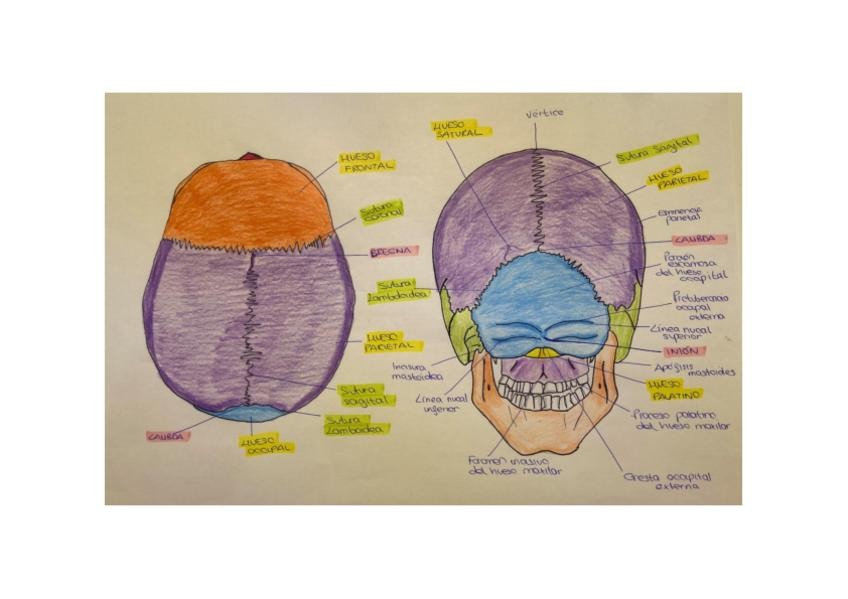 HUESO
FRONTAL
Sutura
coronal
BREGMA
HUESO
PARIETAL
Sutura
sagital
Sutura
lambdoidea
LAMBDA
HUESO
OCCIPAL
vértice
HUESO
SATURAL
Sutura sagital
HUESO
PARIETAL
Eminencia
parietal
LAMBDA
Porción
escamosa
del hueso
occipital
Protuberancia
ocupal
externa
Línea nucal
superior
INIÓN
Apófisis
mastoides
HUESO
PALATINO
Proceso palatino
del hueso maxilar
Cresta occipital
externa
Sutura
lambdoidea
Incisura
mastoidea
Línea nucal
inferior
Foramen incisivo
del hueso maxilar